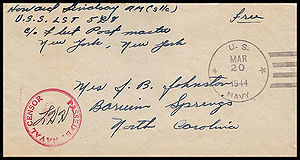 Howard Lindsay RM (3/c)
U.S.S. LST 528
c/o Fleet Post master
New York, New York
Free
U. S.
MAR
20
1944
NAVY
Mrs J. B. Johnston
Barium Springs
North Carolina
PASSED BY
NAVAL CENSOR